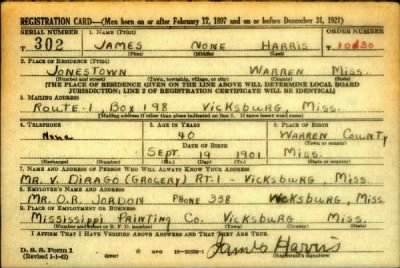 REGISTRATION CARD—(Men born on or after February 17, 1897 and on or before December 31, 1921)
SERIAL NUMBER 1. NAME (Print) ORDER NUMBER
T 302 JAMES NONE HARRIS
(First) (Middle) (Last)
2. PLACE OF RESIDENCE (Print)
JONESTOWN WARREN MISS.
(Number and street) (Town, township, village, or city) (County) (State)
[THE PLACE OF RESIDENCE GIVEN ON THE LINE ABOVE WILL DETERMINE LOCAL BOARD
JURISDICTION; LINE 2 OF REGISTRATION CERTIFICATE WILL BE IDENTICAL]
3. MAILING ADDRESS
ROUTE-1, BOX 198 VICKSBURG, MISS.
[Mailing address if other than place indicated on line 2. If same insert word same]
4. TELEPHONE 5. AGE IN YEARS 6. PLACE OF BIRTH
None 40 WARREN COUNTY
DATE OF BIRTH (Town or county)
SEPT. 19 1901 MISS.
(Exchange) (Number) (Mo.) (Day) (Yr.) (State or country)
7. NAME AND ADDRESS OF PERSON WHO WILL ALWAYS KNOW YOUR ADDRESS
MR. V. DIRAGO (GROCERY) RT-1 - VICKSBURG, MISS.
8. EMPLOYER'S NAME AND ADDRESS
MR. O.R. JORDON PHONE 358 VICKSBURG, MISS.
9. PLACE OF EMPLOYMENT OR BUSINESS
MISSISSIPPI PRINTING CO. VICKSBURG MISS.
(Number and street or R. F. D. number) (Town) (County) (State)
I AFFIRM THAT I HAVE VERIFIED ABOVE ANSWERS AND THAT THEY ARE TRUE.
D. S. S. Form 1
(Revised 1-1-42) (over) GPO James Harris
(Registrant's signature)